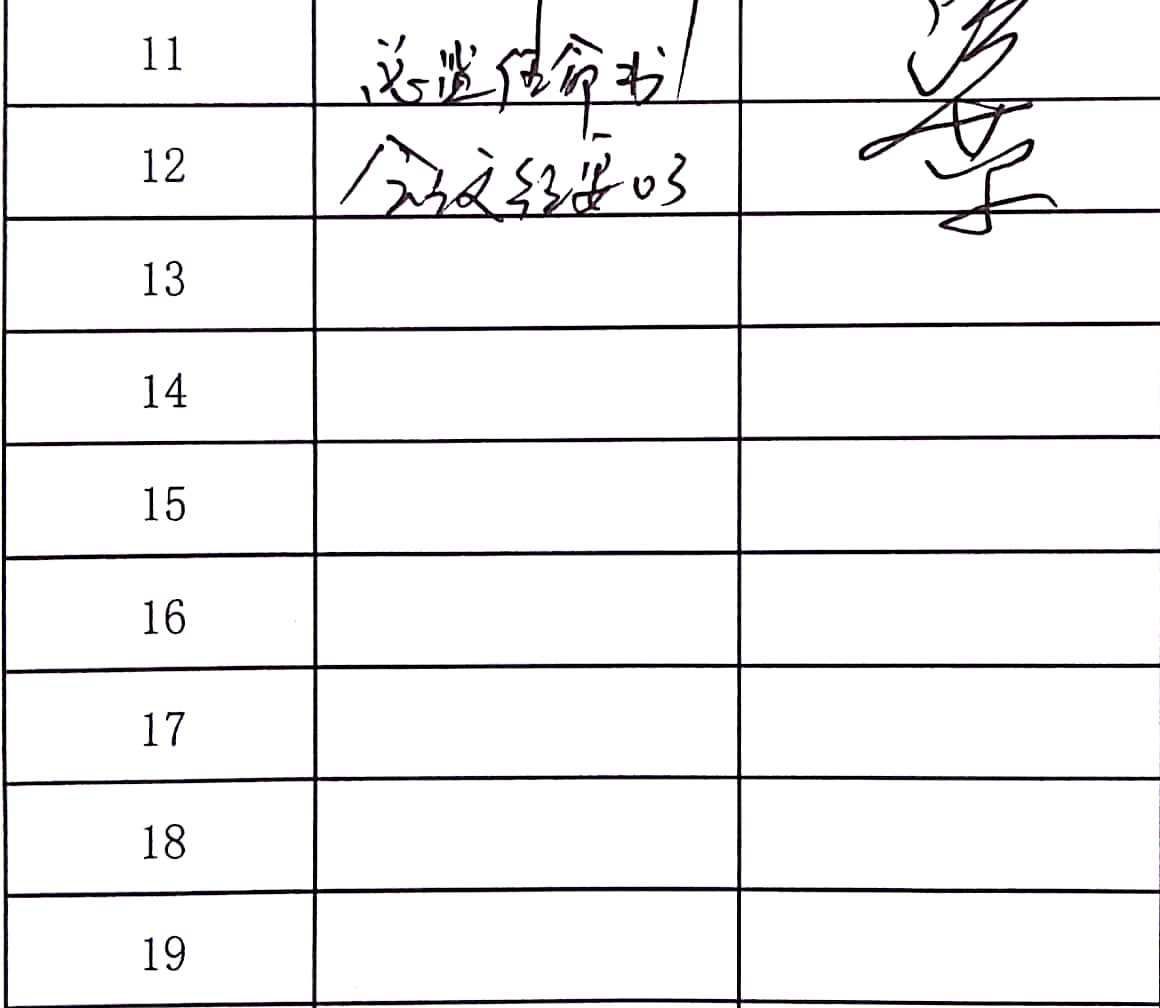 11 总监任命书
12 会议纪要03
13
14
15
16
17
18
19